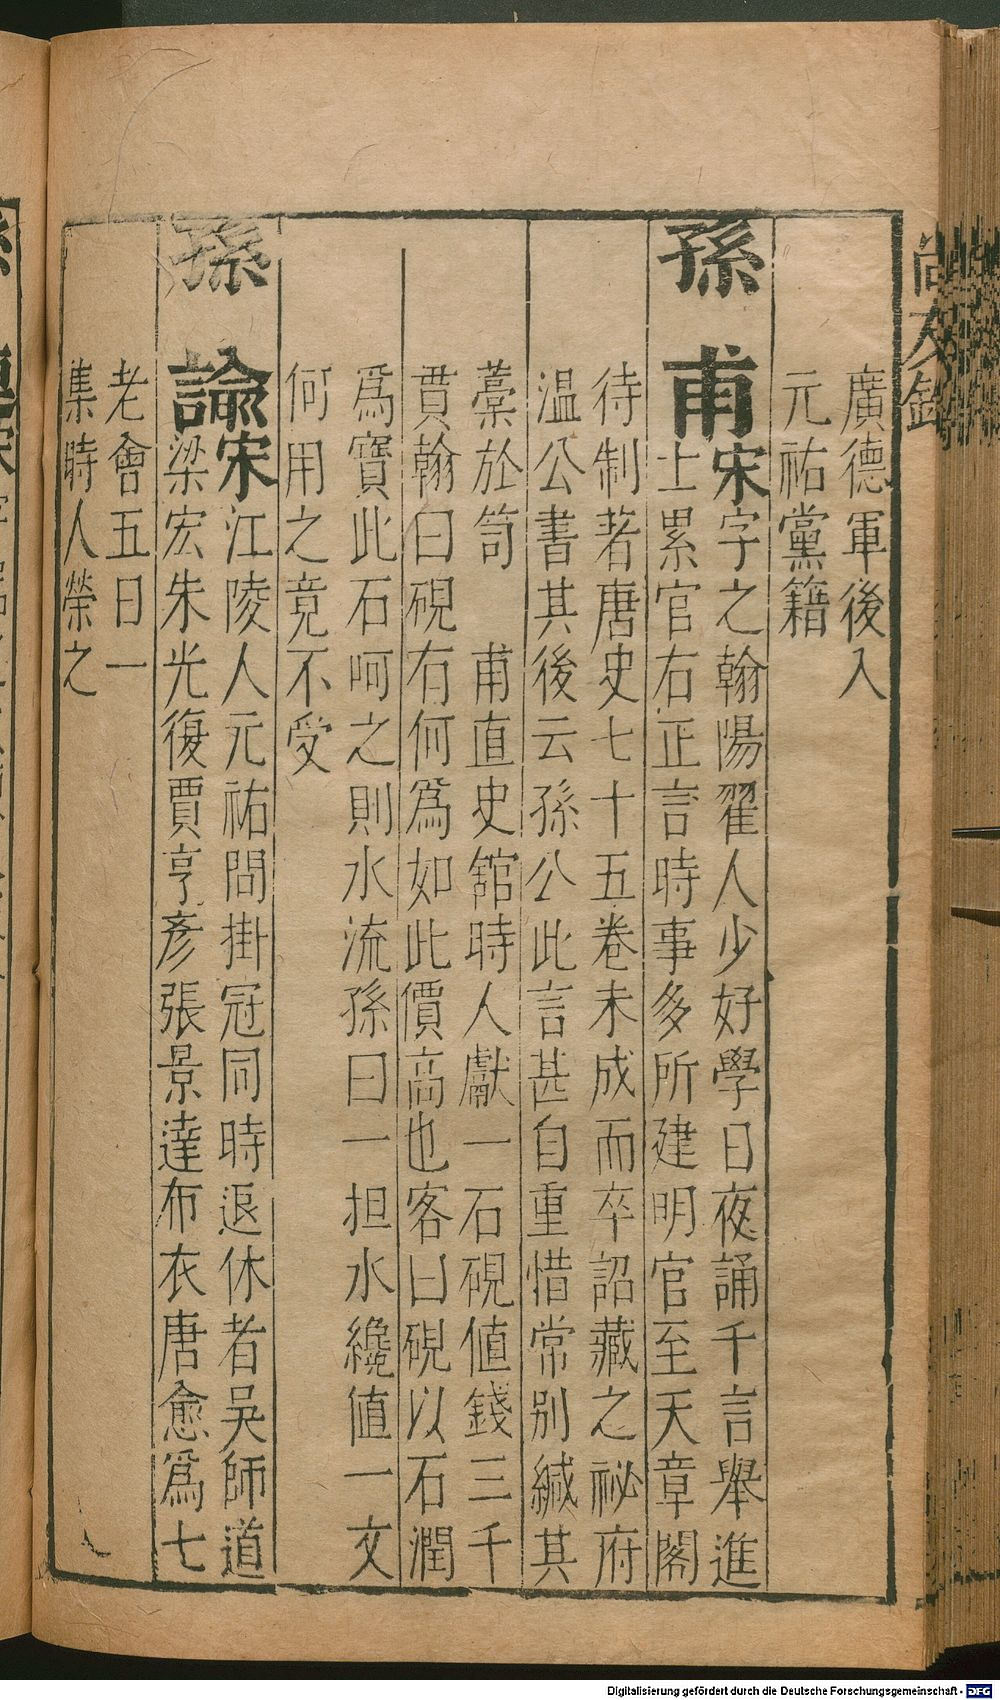 廣德軍後入
元祐黨籍
孫甫宋字之翰陽翟人少好學日夜誦千言舉進
士累官右正言時事多所建明官至天章閣
待制著唐史七十五卷未成而卒詔藏之祕府
溫公書其後云孫公此言甚自重惜常別緘其
藳於笥　甫直史舘時人獻一石硯值錢三千
賈翰曰硯有何爲如此價高也客曰硯以石潤
爲寶此石呵之則水流孫曰一担水纔值一文
何用之竟不受
孫諭宋江陵人元祐間掛冠同時退休者吳師道
梁宏朱光復賈亨彥張景達布衣唐愈爲七
老會五日一
集時人榮之
Digitalisierung gefördert durch die Deutsche Forschungsgemeinschaft - DFG